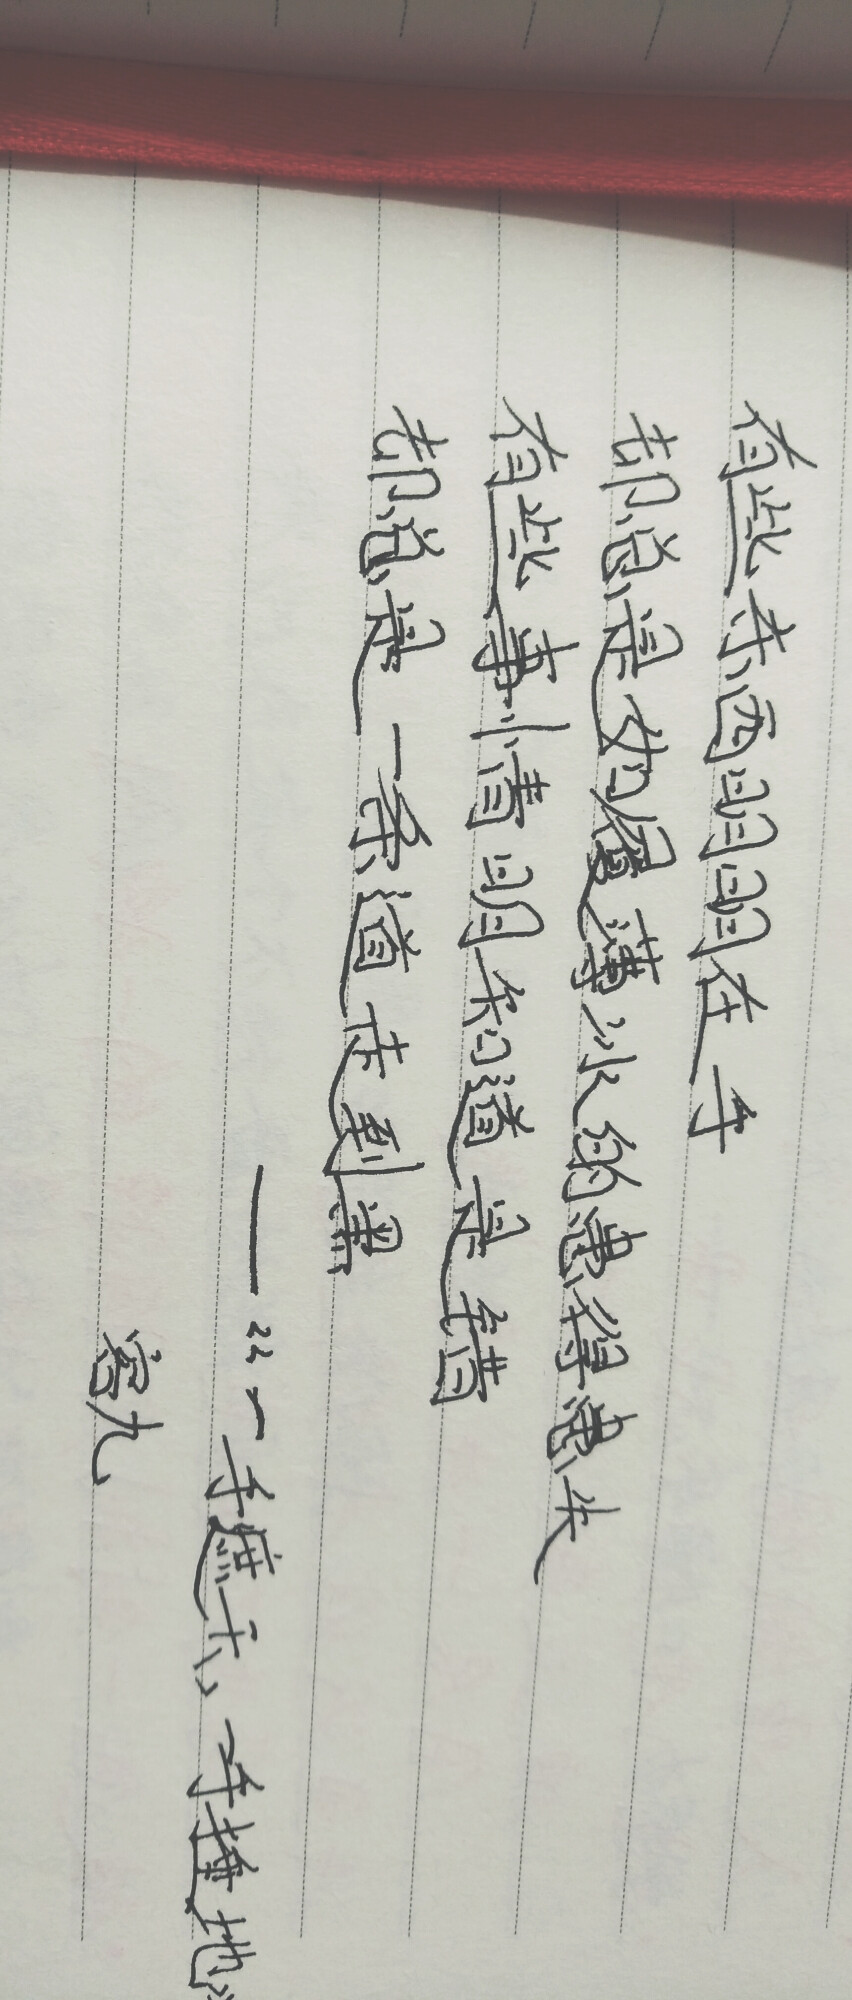 有些东西明明在手
却总是如履薄冰的患得患失
有些事情明知道是错
却总是一条道走到黑
——“一手遮天,一手地”
九